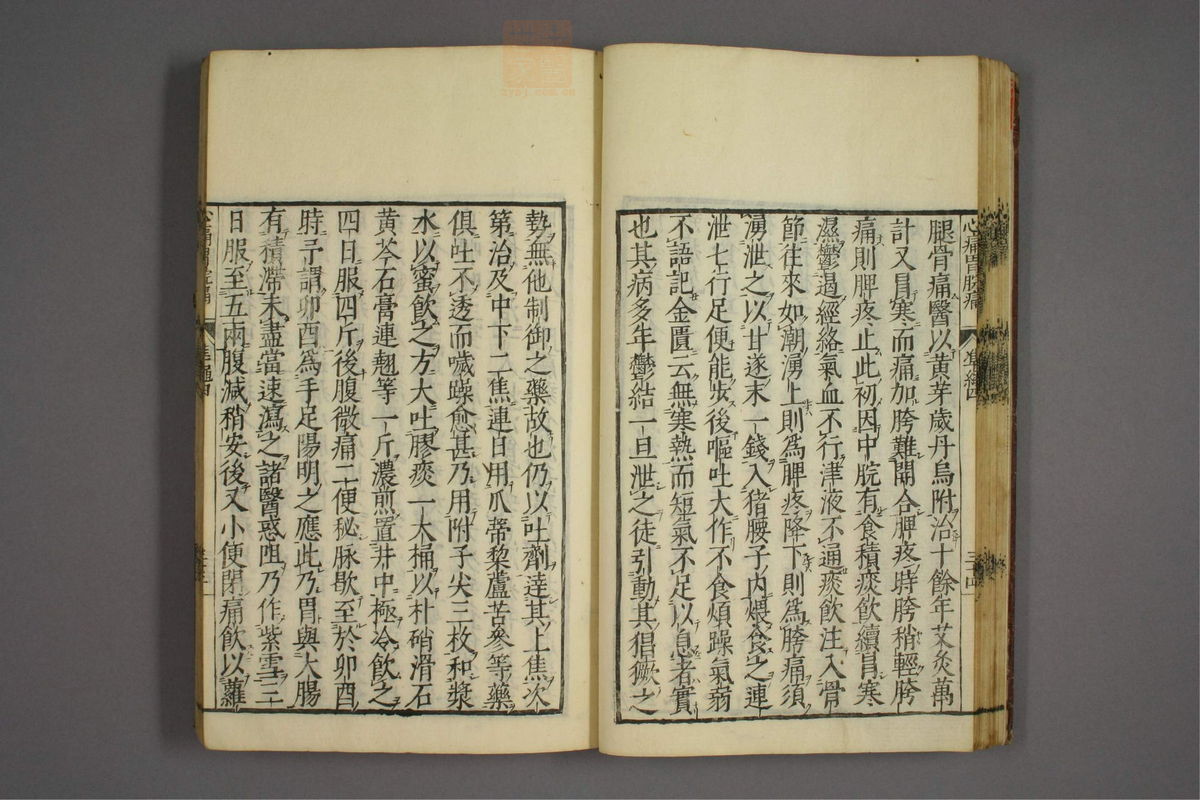 腿骨痛醫以黃芽歲丹烏附治十餘年艾灸萬
計又冐寒而痛加胯難開合脾疼時胯稍輕胯
痛則脾疼止此初因中脘有食積痰飲續冐寒
濕鬱遏經絡氣血不行津液不通痰飲注入骨
節往來如潮湧上則爲脾疼降下則爲胯痛須
湧泄之以甘遂末一錢入猪腰子內煨食之連
泄七行足便能步後嘔吐大作不食煩躁氣弱
不語記金匱云無寒熱而短氣不足以息者實
也其病多年鬱結一旦泄之徒引動其猖獗之
勢無他制御之藥故也仍以吐劑達其上焦次
第治及中下二焦連日用瓜蒂藜蘆苦參等藥
俱吐不透而噦躁愈甚乃用附子尖三枚和漿
水以蜜飲之方大吐膠痰一大桶以朴硝滑石
黃芩石膏連翹等一斤濃煎置井中極冷飲之
四日服四斤後腹微痛二便秘脉歇至於卯酉
時予謂卯酉爲手足陽明之應此乃胃與大腸
有積滯未盡當速瀉之諸醫惑阻乃作紫雪三
日服至五兩腹減稍安後又小便閉痛飲以蘿
心痛胃脘痛